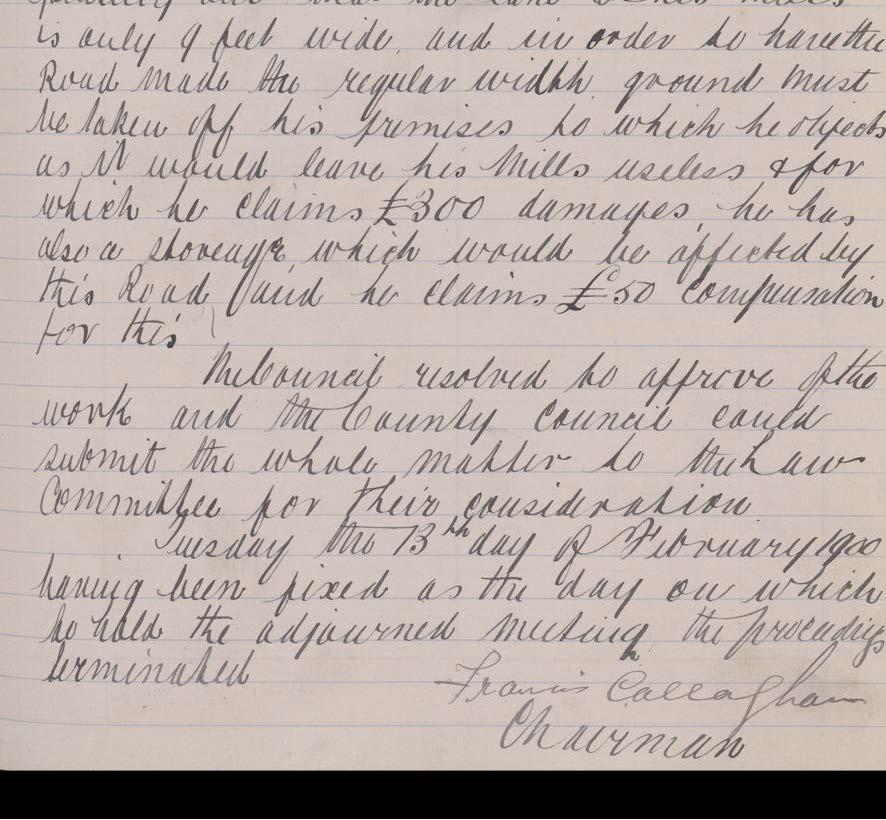 is only 9 feet wide, and in order to have the
Road made the regular width, ground must
be taken off his premises to which he objects
as it would leave his Mills useless & for
which he claims £300 damages, he has
also a storeage which would be affected by
this Road and he claims £50 compensation
for this
The Council resolved to approve of the
work and the County Council could
submit the whole matter to the Law
Committee for their consideration
Tuesday the 13th day of February 1900
having been fixed as the day on which
to hold the adjourned meeting, the procedings
terminated
Francis Callaghan
Chairman